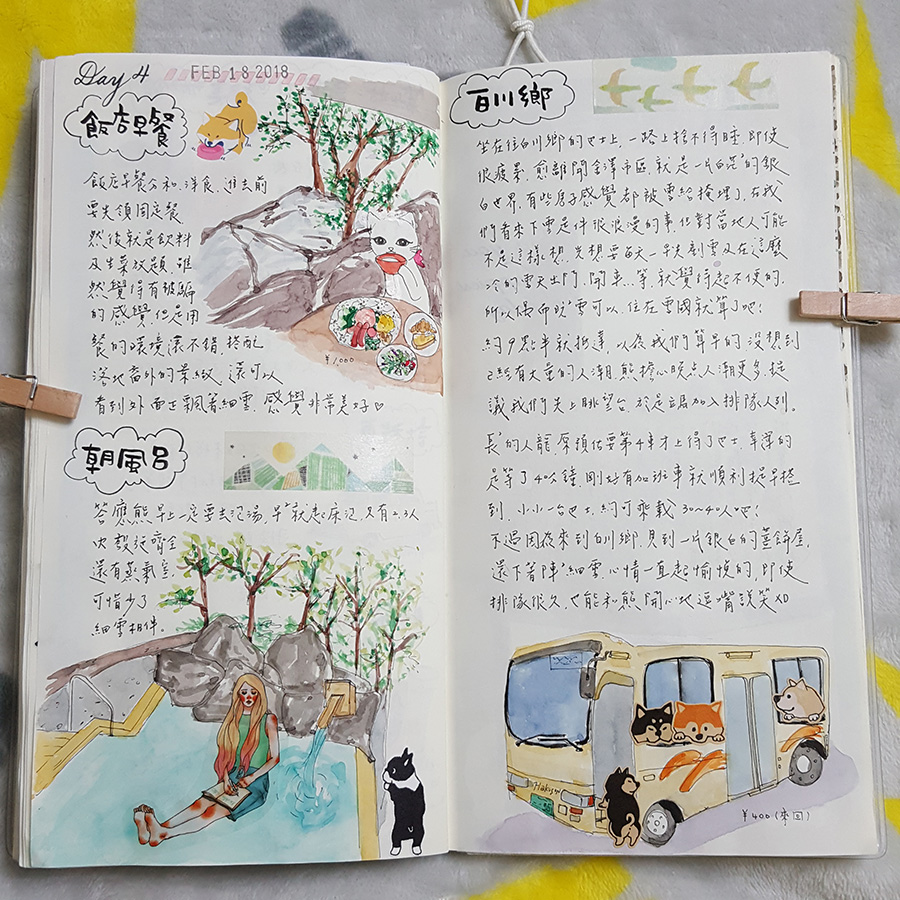 Day 4
FEB 18 2018
飯店早餐
飯店早餐分和、洋食、進去前
要先領固定餐
然後就是飲料
及生菜放題,雖
然覺得有被騙
的感覺但是用
餐的環境還不錯,搭配
落地窗外的景緻,還可以
看到外面正飄著細雪,感覺非常美好♡
¥1,000
朝風呂
答應熊早上一定要去泡湯,早早就起床泡,只有2.3人
設施齊全
還有蒸氣室,
可惜少了
細雪相伴。
白川鄉
坐在往白川鄉的巴士上,一路上捨不得睡,即使
很疲累,愈離開金澤市區,就是一片白茫的銀
白世界,有些房子感覺都被雪給掩埋了,在我
們看來下雪是件很浪漫的事,但對當地人可能
不是這樣想,光想要每天一早先剷雪及在這麼
冷的雪天出門、開車…等,就覺得起不來的,
所以偶而玩雪可以,住在雪國就算了吧!
約9點半就抵達,以為我們算早的,沒想到
已經有大量的人潮,熊擔心晚點人潮更多,提
議我們先上眺望台,於是馬加入排隊人列。
長長的人龍,原預估要第4車才上得了巴士,幸運的
是等了40分鐘,剛好有加班車就順利提早搭
到,小小一台巴士,約可乘載30~40人吧!
不過因為來到白川鄉,見到一片銀白的薑餅屋,
還下著陣陣細雪,心情一直是愉悅的,即使
排隊很久,也能和熊開心地逗嘴說笑XD
¥400(來回)